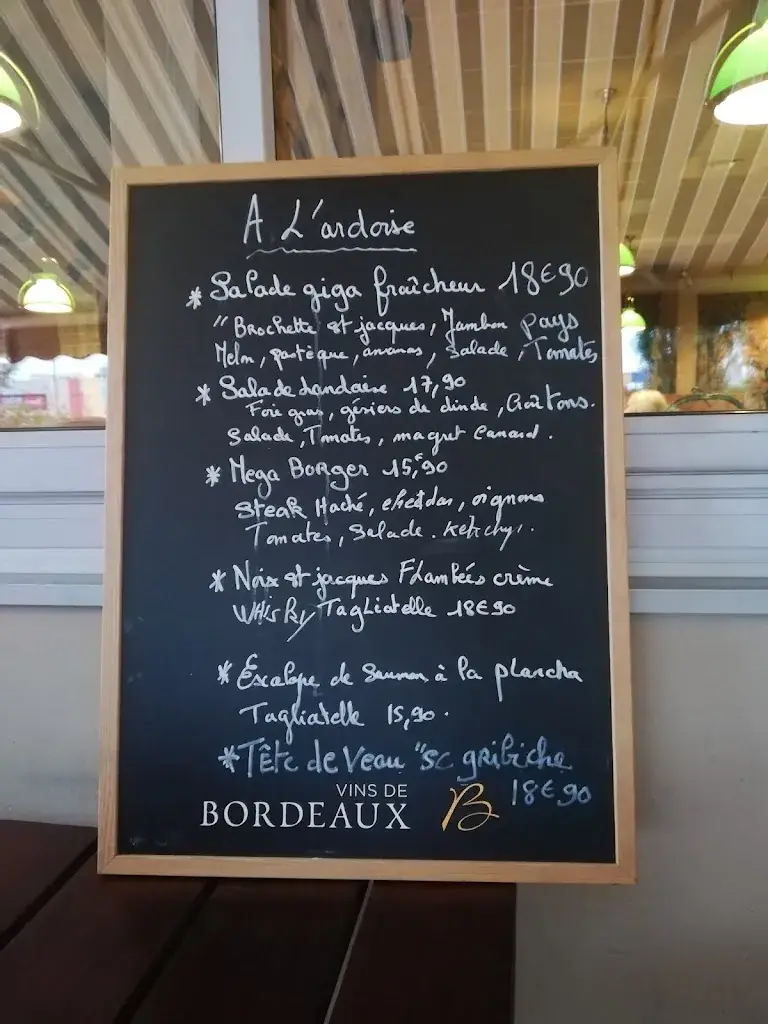 A L'ardoise
* Salade giga fraîcheur 18€90
"Brochette st jacques, Jambon Pays
Melon, pastèque, ananas, Salade, Tomates
* Salade Landaise 17,90
Foie gras, gésiers de dinde, Croûtons.
Salade, Tomates, magret Canard.
* Mega Borger 15,€90
Steak Haché, cheddar, oignons
Tomates, Salade. Ketchup.
* Noix st jacques Flambées crème
Whisky Tagliatelle 18€90
* Escalope de Saumon à la plancha
Tagliatelle 15,90.
* Tête de Veau "sc gribiche
18€90
VINS DE
BORDEAUX B